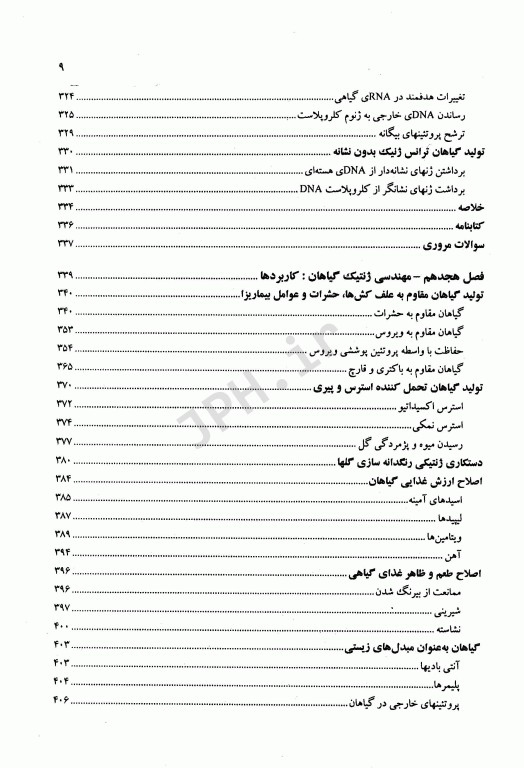 ۹
تغییرات هدفمند در RNAی گیاهی ۳۲۴
رساندن DNAی خارجی به ژنوم کلروپلاست ۳۲۵
ترشح پروتئینهای بیگانه ۳۲۹
تولید گیاهان ترانس ژنیک بدون نشانه ۳۳۰
برداشتن ژنهای نشانه‌دار از DNAی هسته‌ای ۳۳۱
برداشت ژنهای نشانگر از کلروپلاست DNA ۳۳۳
خلاصه ۳۳۴
کتابنامه ۳۳۶
سوالات مروری ۳۳۷
فصل هجدهم – مهندسی ژنتیک گیاهان : کاربردها ۳۳۹
تولید گیاهان مقاوم به علف کش‌ها، حشرات و عوامل بیماریزا ۳۴۰
گیاهان مقاوم به حشرات ۳۴۰
گیاهان مقاوم به ویروس ۳۵۳
حفاظت با واسطه پروتئین پوششی ویروس ۳۵۴
گیاهان مقاوم به باکتری و قارچ ۳۶۵
تولید گیاهان تحمل کننده استرس و پیری ۳۷۰
استرس اکسیداتیو ۳۷۲
استرس نمکی ۳۷۴
رسیدن میوه و پژمردگی گل ۳۷۷
دستکاری ژنتیکی رنگدانه سازی گلها ۳۸۰
اصلاح ارزش غذایی گیاهان ۳۸۴
اسیدهای آمینه ۳۸۵
لیپیدها ۳۸۷
ویتامین‌ها ۳۸۹
آهن ۳۹۴
اصلاح طعم و ظاهر غذای گیاهی ۳۹۶
ممانعت از بیرنگ شدن ۳۹۶
شیرینی ۳۹۷
نشاسته ۴۰۰
گیاهان به‌عنوان مبدل‌های زیستی ۴۰۳
آنتی بادیها ۴۰۳
پلیمرها ۴۰۴
پروتئینهای خارجی در گیاهان ۴۰۶
JPH.ir